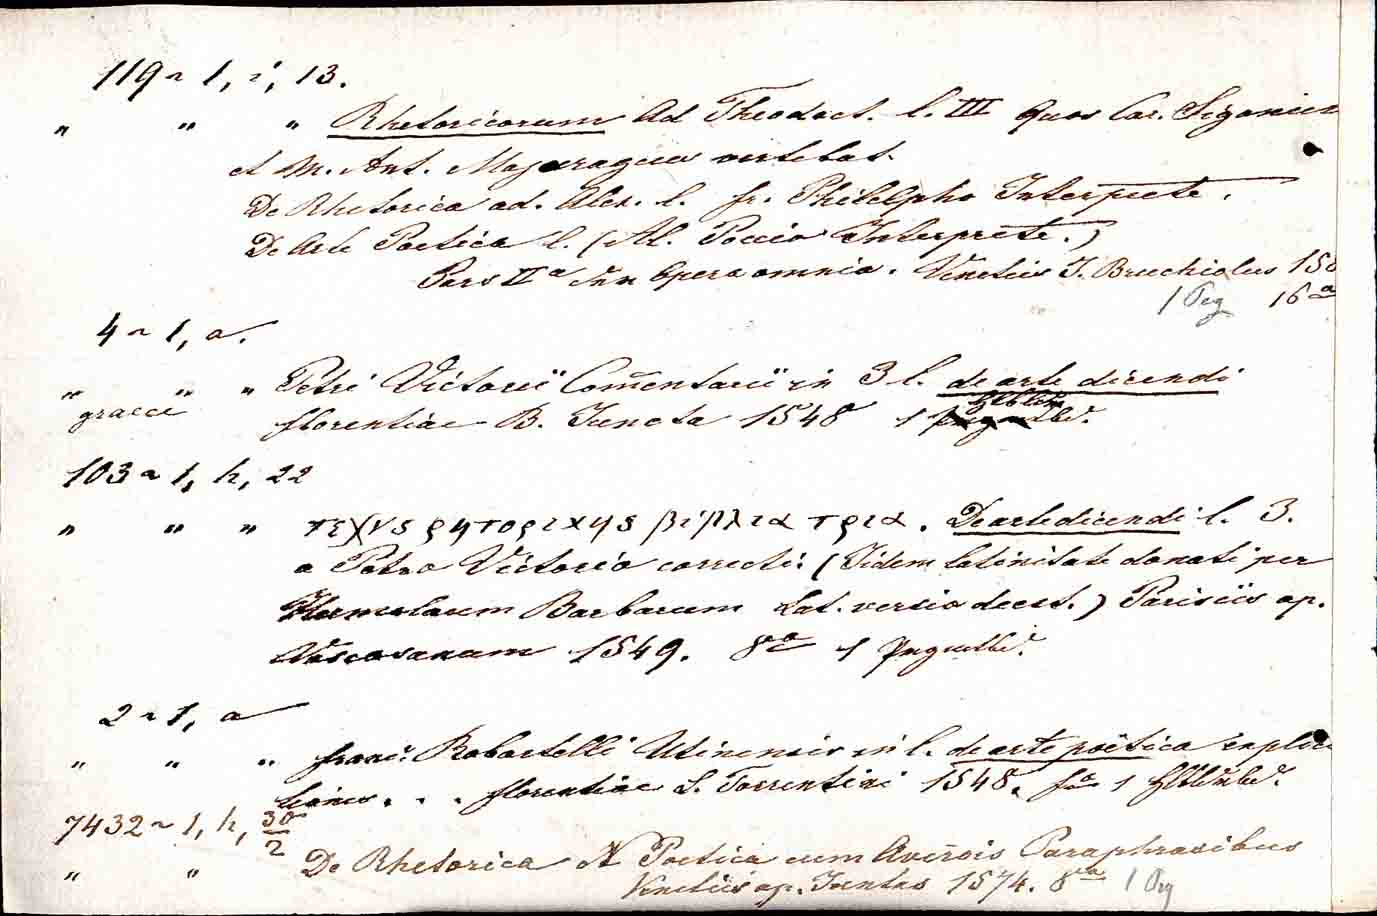 119 ~ 1, i, 13.
" " " Rhetoricorum Ad Theodect. l. III Quos Car. Sigonius
et M. Ant. Majoragius vertebat.
De Rhetorica ad. Alex. l. fr. Philelpho Interprete.
De Arte Poetica l. (Al. Paccio Interprete.)
Pars IIa in Opera omnia. Venetiis J. Bruchiolus 158
1 Prg 16a
4 ~ 1, a.
" " " Petri Victorii Commentarii in 3 l. de arte dicendi
graece florentiae B. Juncta 1548 1
103 ~ 1, h, 22
" " " τεχνης ρητορικης βιβλια τρια. De arte dicendi l. 3.
a Petro Victorio correcti: (Iidem latinitate donati per
Hermolaum Barbarum Lat. versio deest.) Parisiis ap.
Vascosanum 1549. 8a 1
2 ~ 1, a
" " " franc. Robortelli Utinensis in l. de arte poëtica explica
tiones. . . florentiae L. Torrentini 1548. fa 1
7432 ~ 1, h, 30/2
" " De Rhetorica & Poetica cum Averrois Paraphrasibus
Venetiis ap. Juntas 1574. 8a 1 Prg